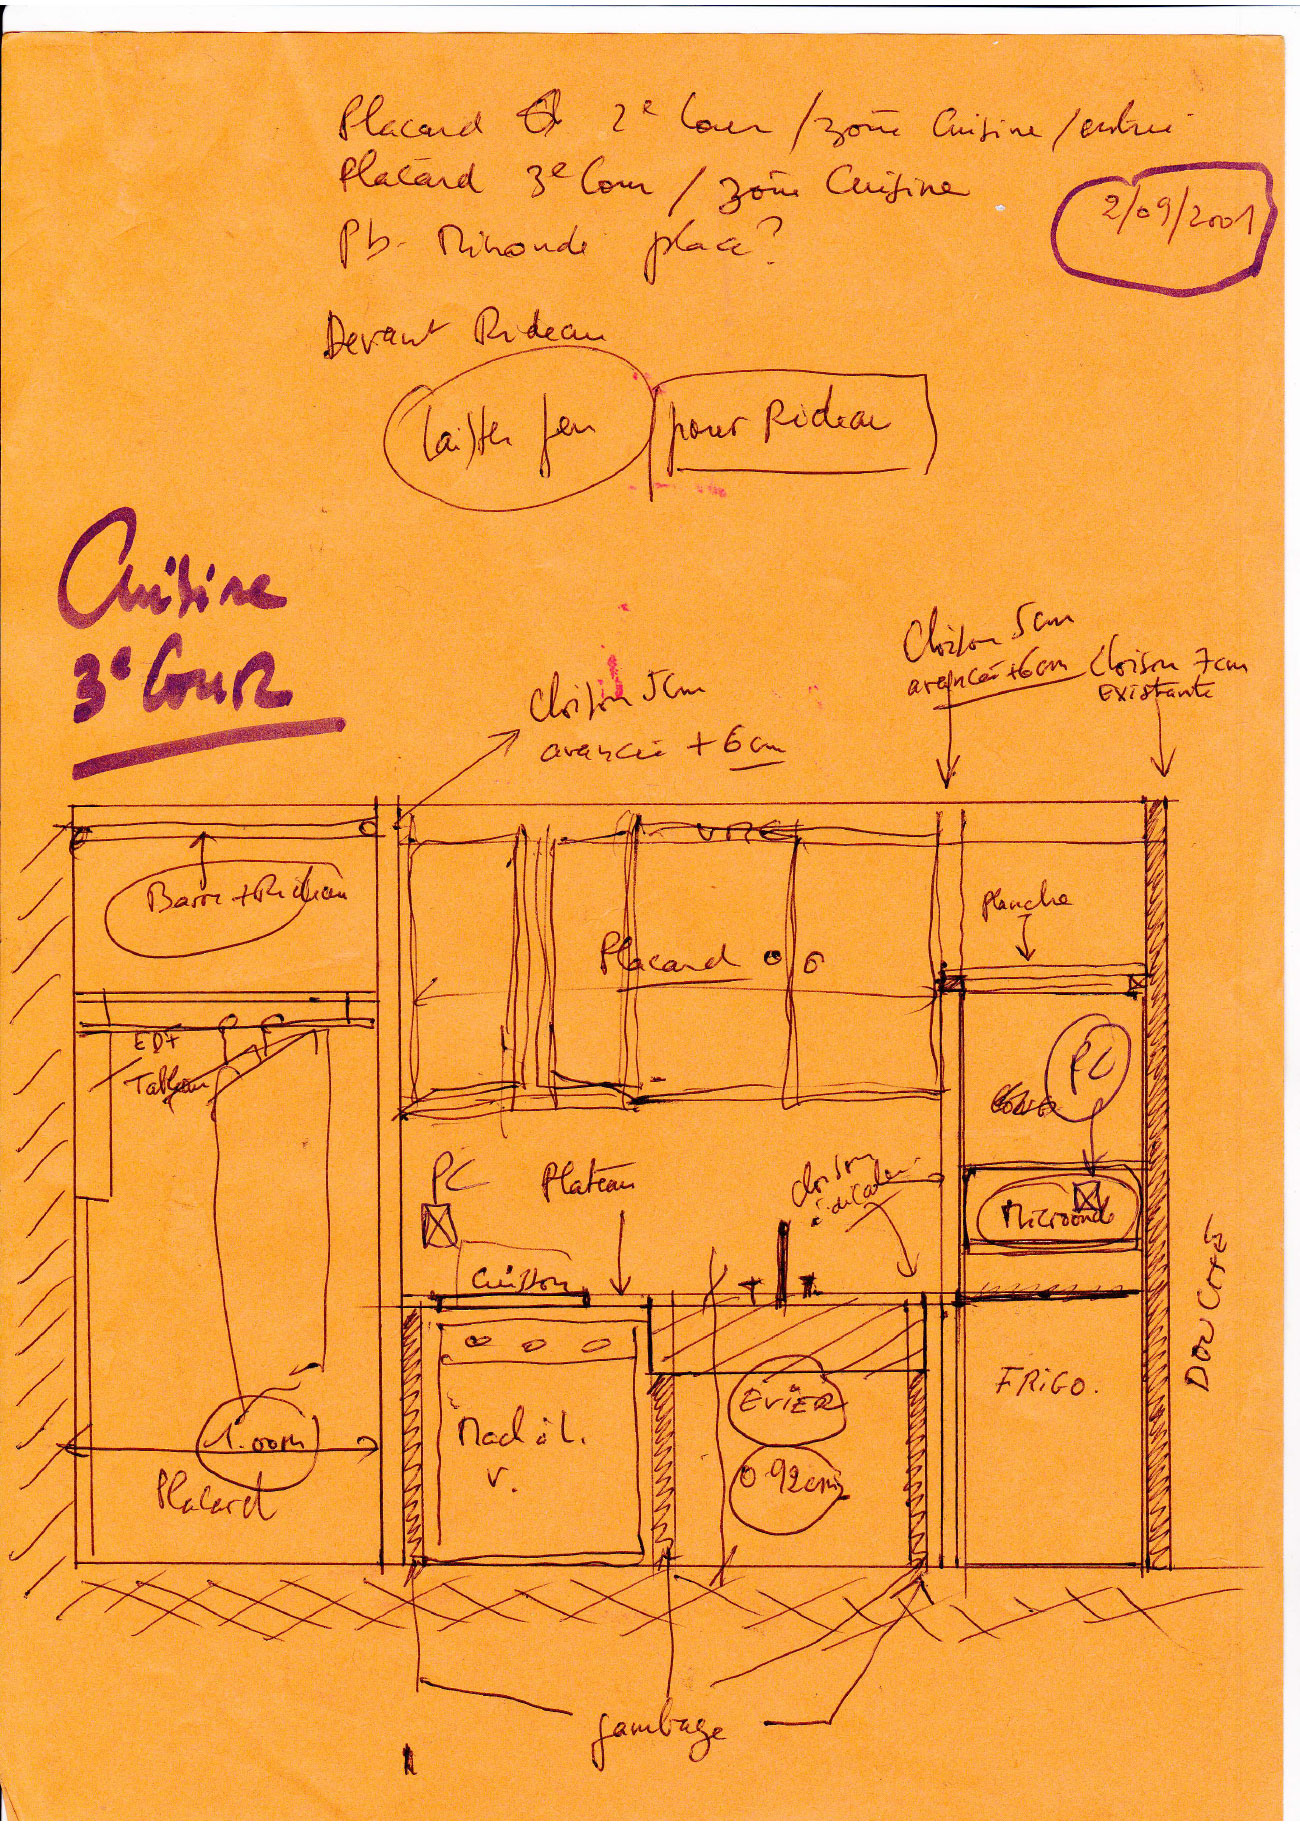 Placard 2e Cour / zone Cuisine / entrée
Placard 3e Cour / zone Cuisine
2/09/2001
Pb. Mihonde place?
Devant Rideau
laisser jeu pour Rideau
Cuisine
3e Cour
Cloison 5cm
avancée +6cm
Cloison 7cm
EXistante
Cloison 5cm
avancée + 6cm
Barre + Rideau
Planche
Placard
EDF
Tableau
PC
PC
Plateau
Cloison
Microonde
Cuisson
DOUCHE
FRIGO.
EVIER
Mach à L.
V.
0.92cm
1.00m
Placard
jambage